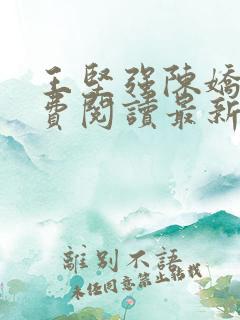 王堅强陳嬌
費閱讀最新
離別不語
未经同意禁止轉載